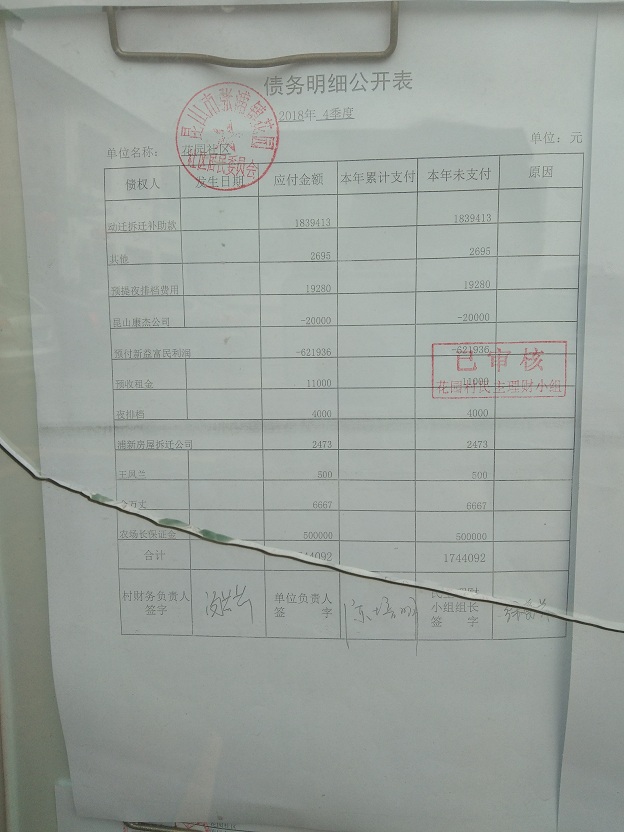 债务明细公开表
2018年 4季度
单位名称： 花园社区
单位：元
债权人 发生日期 应付金额 本年累计支付 本年未支付 原因
动迁拆迁补助款 1839413 1839413
其他 2695 2695
预提夜排档费用 19280 19280
昆山康杰公司 -20000 -20000
预付新益富民利润 -621936 -621936
预收租金 11000 11000
夜排档 4000 4000
浦新房屋拆迁公司 2473 2473
王凤兰 500 500
万丈 6667 6667
农场长保证金 500000 500000
合计 44092 1744092
村财务负责人
签字
单位负责人
签 字
小组组长
签 字
昆山市张浦镇花园
社区居民委员会
已审核
花园村民主理财小组